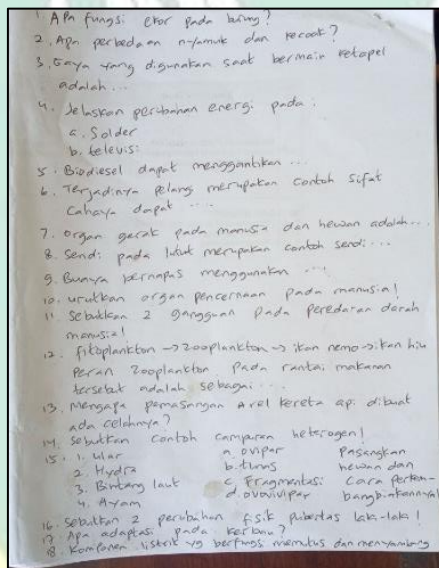 1. Apa fungsi ekor pada burung?
2. Apa perbedaan nyamuk dan kecoak?
3. Gaya yang digunakan saat bermain ketapel
adalah ...
4. Jelaskan perubahan energi pada :
a. Solder
b. televisi
5. Biodiesel dapat menggantikan ...
6. Terjadinya pelangi merupakan contoh sifat
cahaya dapat ....
7. organ gerak pada manusia dan hewan adalah...
8. Sendi pada lutut merupakan contoh sendi ...
9. Buaya bernapas menggunakan ...
10. urutkan organ pencernaan pada manusia!
11. Sebutkan 2 gangguan pada peredaran darah
manusia!
12. fitoplankton → zooplankton → ikan nemo → ikan hiu
peran zooplankton pada rantai makanan
tersebut adalah sebagai ...
13. Mengapa pemasangan a rel kereta api dibuat
ada celahnya?
14. Sebutkan contoh campuran heterogen!
15. 1. Ular a. ovipar Pasangkan
2. Hydra b. tunas hewan dan
3. Bintang laut c. Fragmentasi cara perkem-
4. Ayam d. ovovivipar bangbiakannya!
16. Sebutkan 2 perubahan fisik pubertas laki-laki!
17. Apa adaptasi pada kerbau?
18. Komponen listrik yg berfungsi memutus dan menyambung